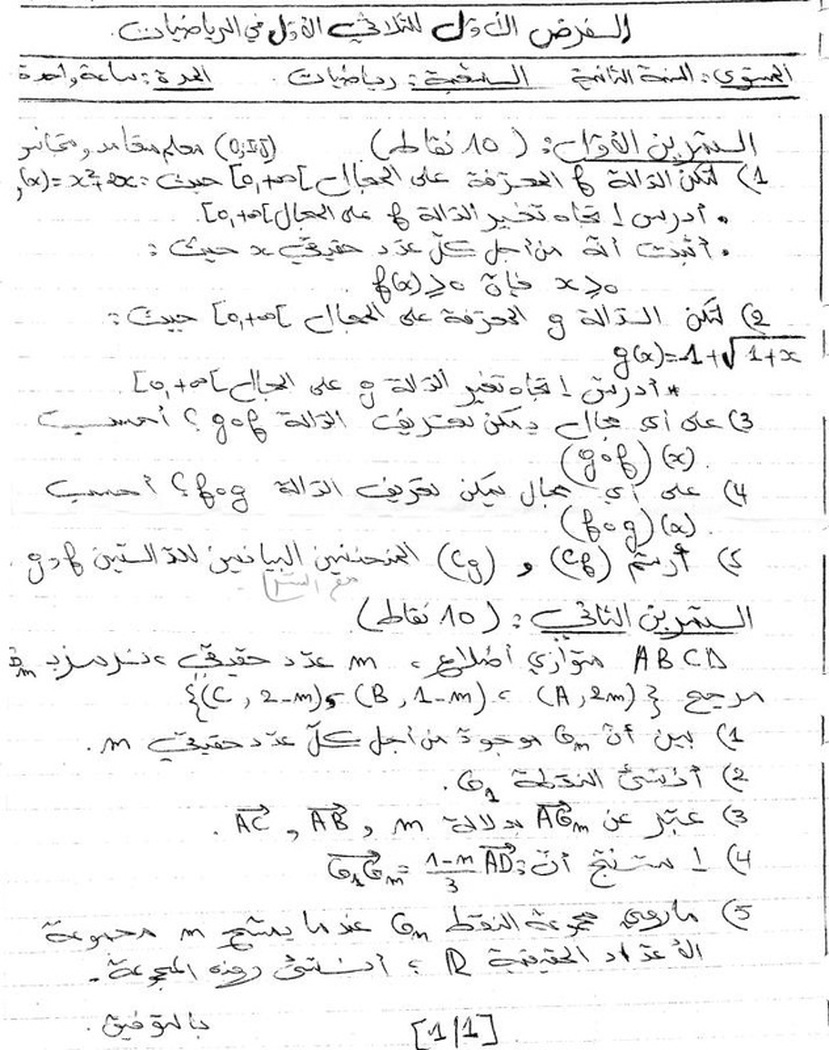 الفرض الأول للثلاثي الأول في الرياضيات.
المستوى: السنة الثانية الشعبة: رياضيات. المدة: ساعة واحدة
التمرين الأول: (10 نقاط) (O;I,J) معلم متعامد ومتجانس
1) لتكن الدالة f المعرفة على المجال [0,+∞[ حيث: f(x)=x²+2x,
• أدرس إتجاه تغير الدالة f على المجال [0,+∞[.
• أثبت أنه من أجل كل عدد حقيقي x حيث:
x≥0 فإن f(x)≥0.
2) لتكن الدالة g المعرفة على المجال [0,+∞[ حيث:
g(x)=-1+√1+x
* أدرس إتجاه تغير الدالة g على المجال [0,+∞[.
3) على أي مجال يمكن تعريف الدالة gof؟ أحسب
(gof)(x).
4) على أي مجال يمكن تعريف الدالة fog؟ أحسب
(fog)(x).
5) أرسم (Cf) و (Cg) المنحنين البيانيين للدالتين f و g.
مع الشرح
التمرين الثاني: (10 نقاط)
ABCD متوازي أضلاع، m عدد حقيقي، نرمز بـ Gm
مرجح {(A,2m)، (B,1-m)، (C,2-m)}
1) بين أن Gm موجودة من أجل كل عدد حقيقي m.
2) أنشئ النقطة G1.
3) عبّر عن AGm بدلالة m, AB, AC.
4) إستنتج أن: G1Gm = 1-m/3 AD
5) ماهي مجموعة النقط Gm عندما يمسح m مجموعة
الأعداد الحقيقية R، أنشئ هذه المجموعة.
بالتوفيق.
[1|1]